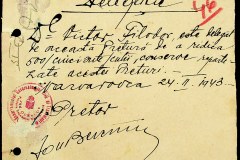 Delegație
46
Dl. Victor Filodor, este delegat
de această Pretură de a ridica
500 (cinci sute) cutii, conserve reparti-
zate acestei Preturi.
Varvarovca 24. II. 1943.
Pretor